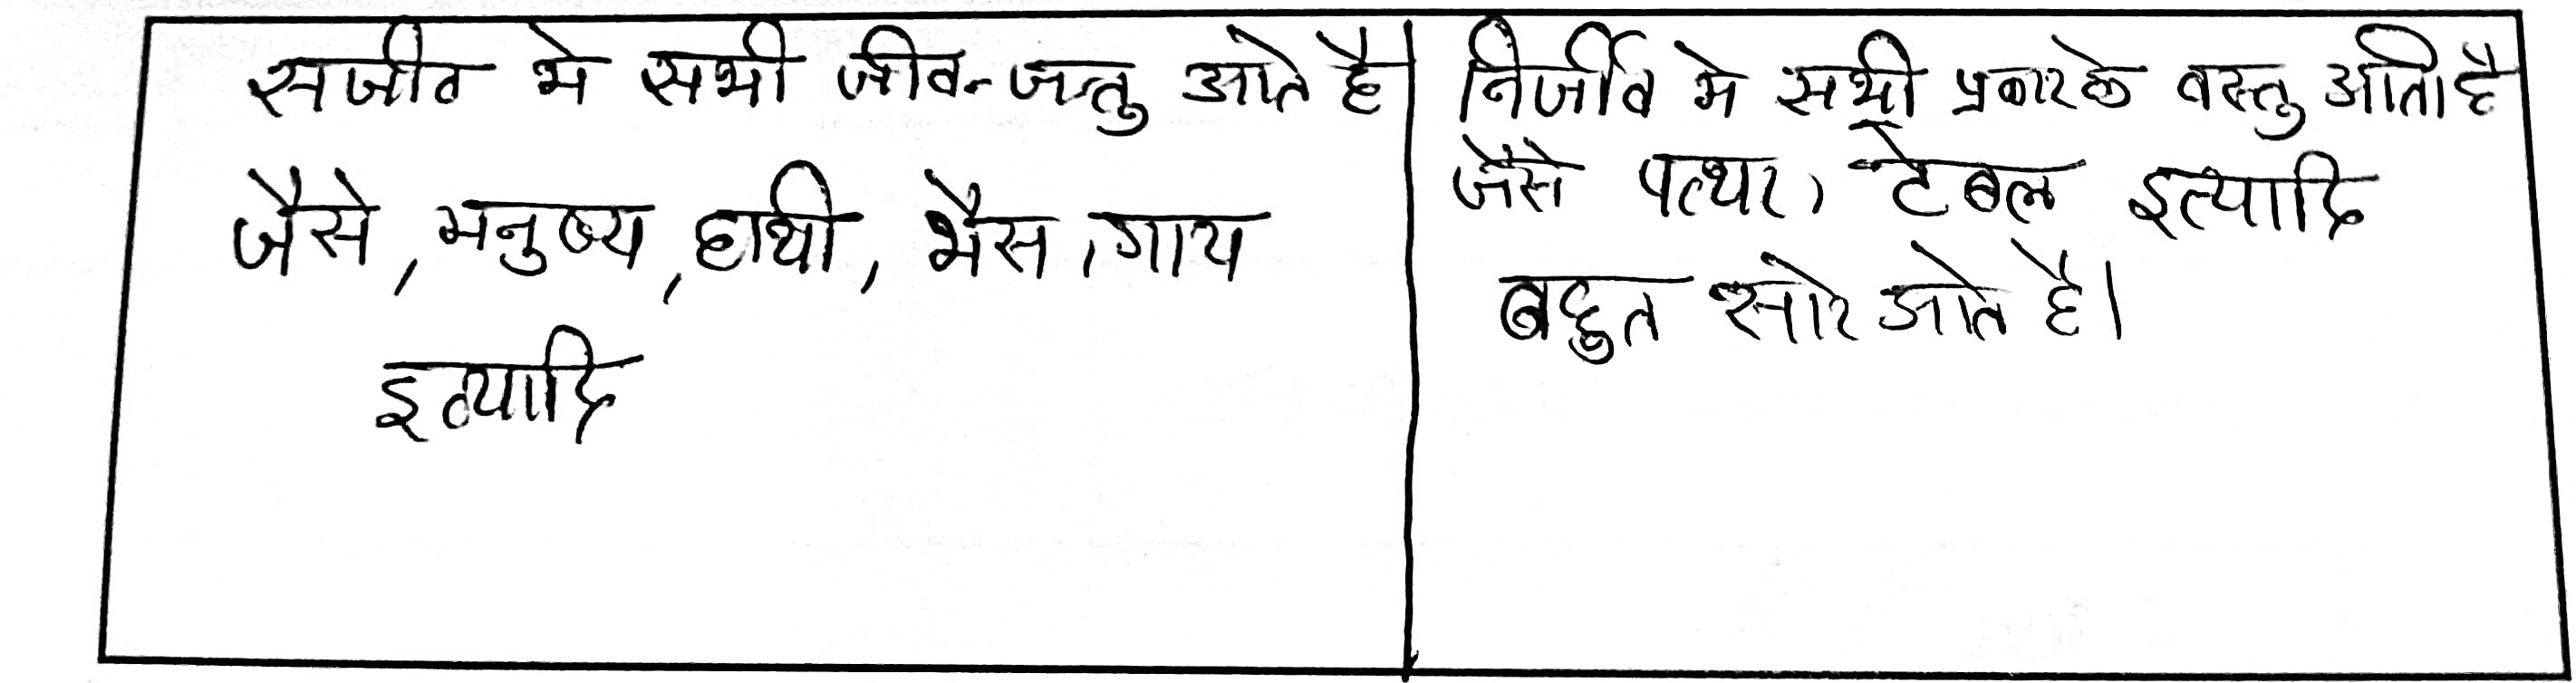 सजीव मे सभी जीव-जन्तु आते है
जैसे, मनुष्य, हाथी, भैस, गाय
इत्यादि
निर्जीव मे सभी प्रकार के वस्तु आती है
जैसे पत्थर, टेबल इत्यादि
बहुत सारे आते है।